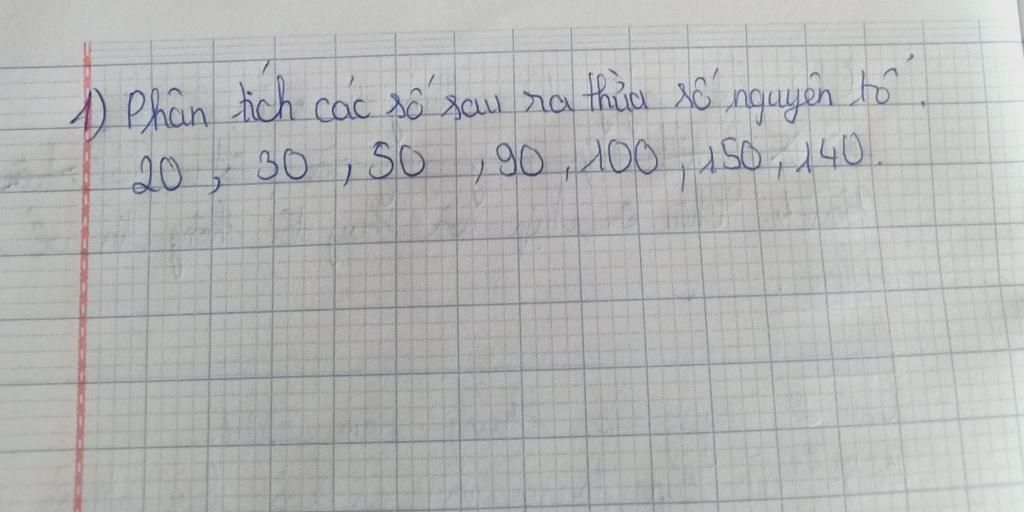 1) Phân tích các số sau ra thừa số nguyên tố.
20, 30, 50, 90, 100, 150, 140.